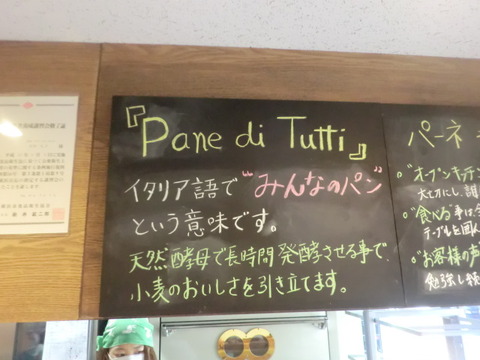 『Pane di Tutti』
イタリア語で "みんなのパン"
という意味です。
天然酵母で長時間発酵させる事で、
小麦のおいしさを引き立てます。
パーネ
◦"オープンキッチン
大切にし、
◦"食べる"事は
テーブルを囲ん
◦"お客様の声
勉強し